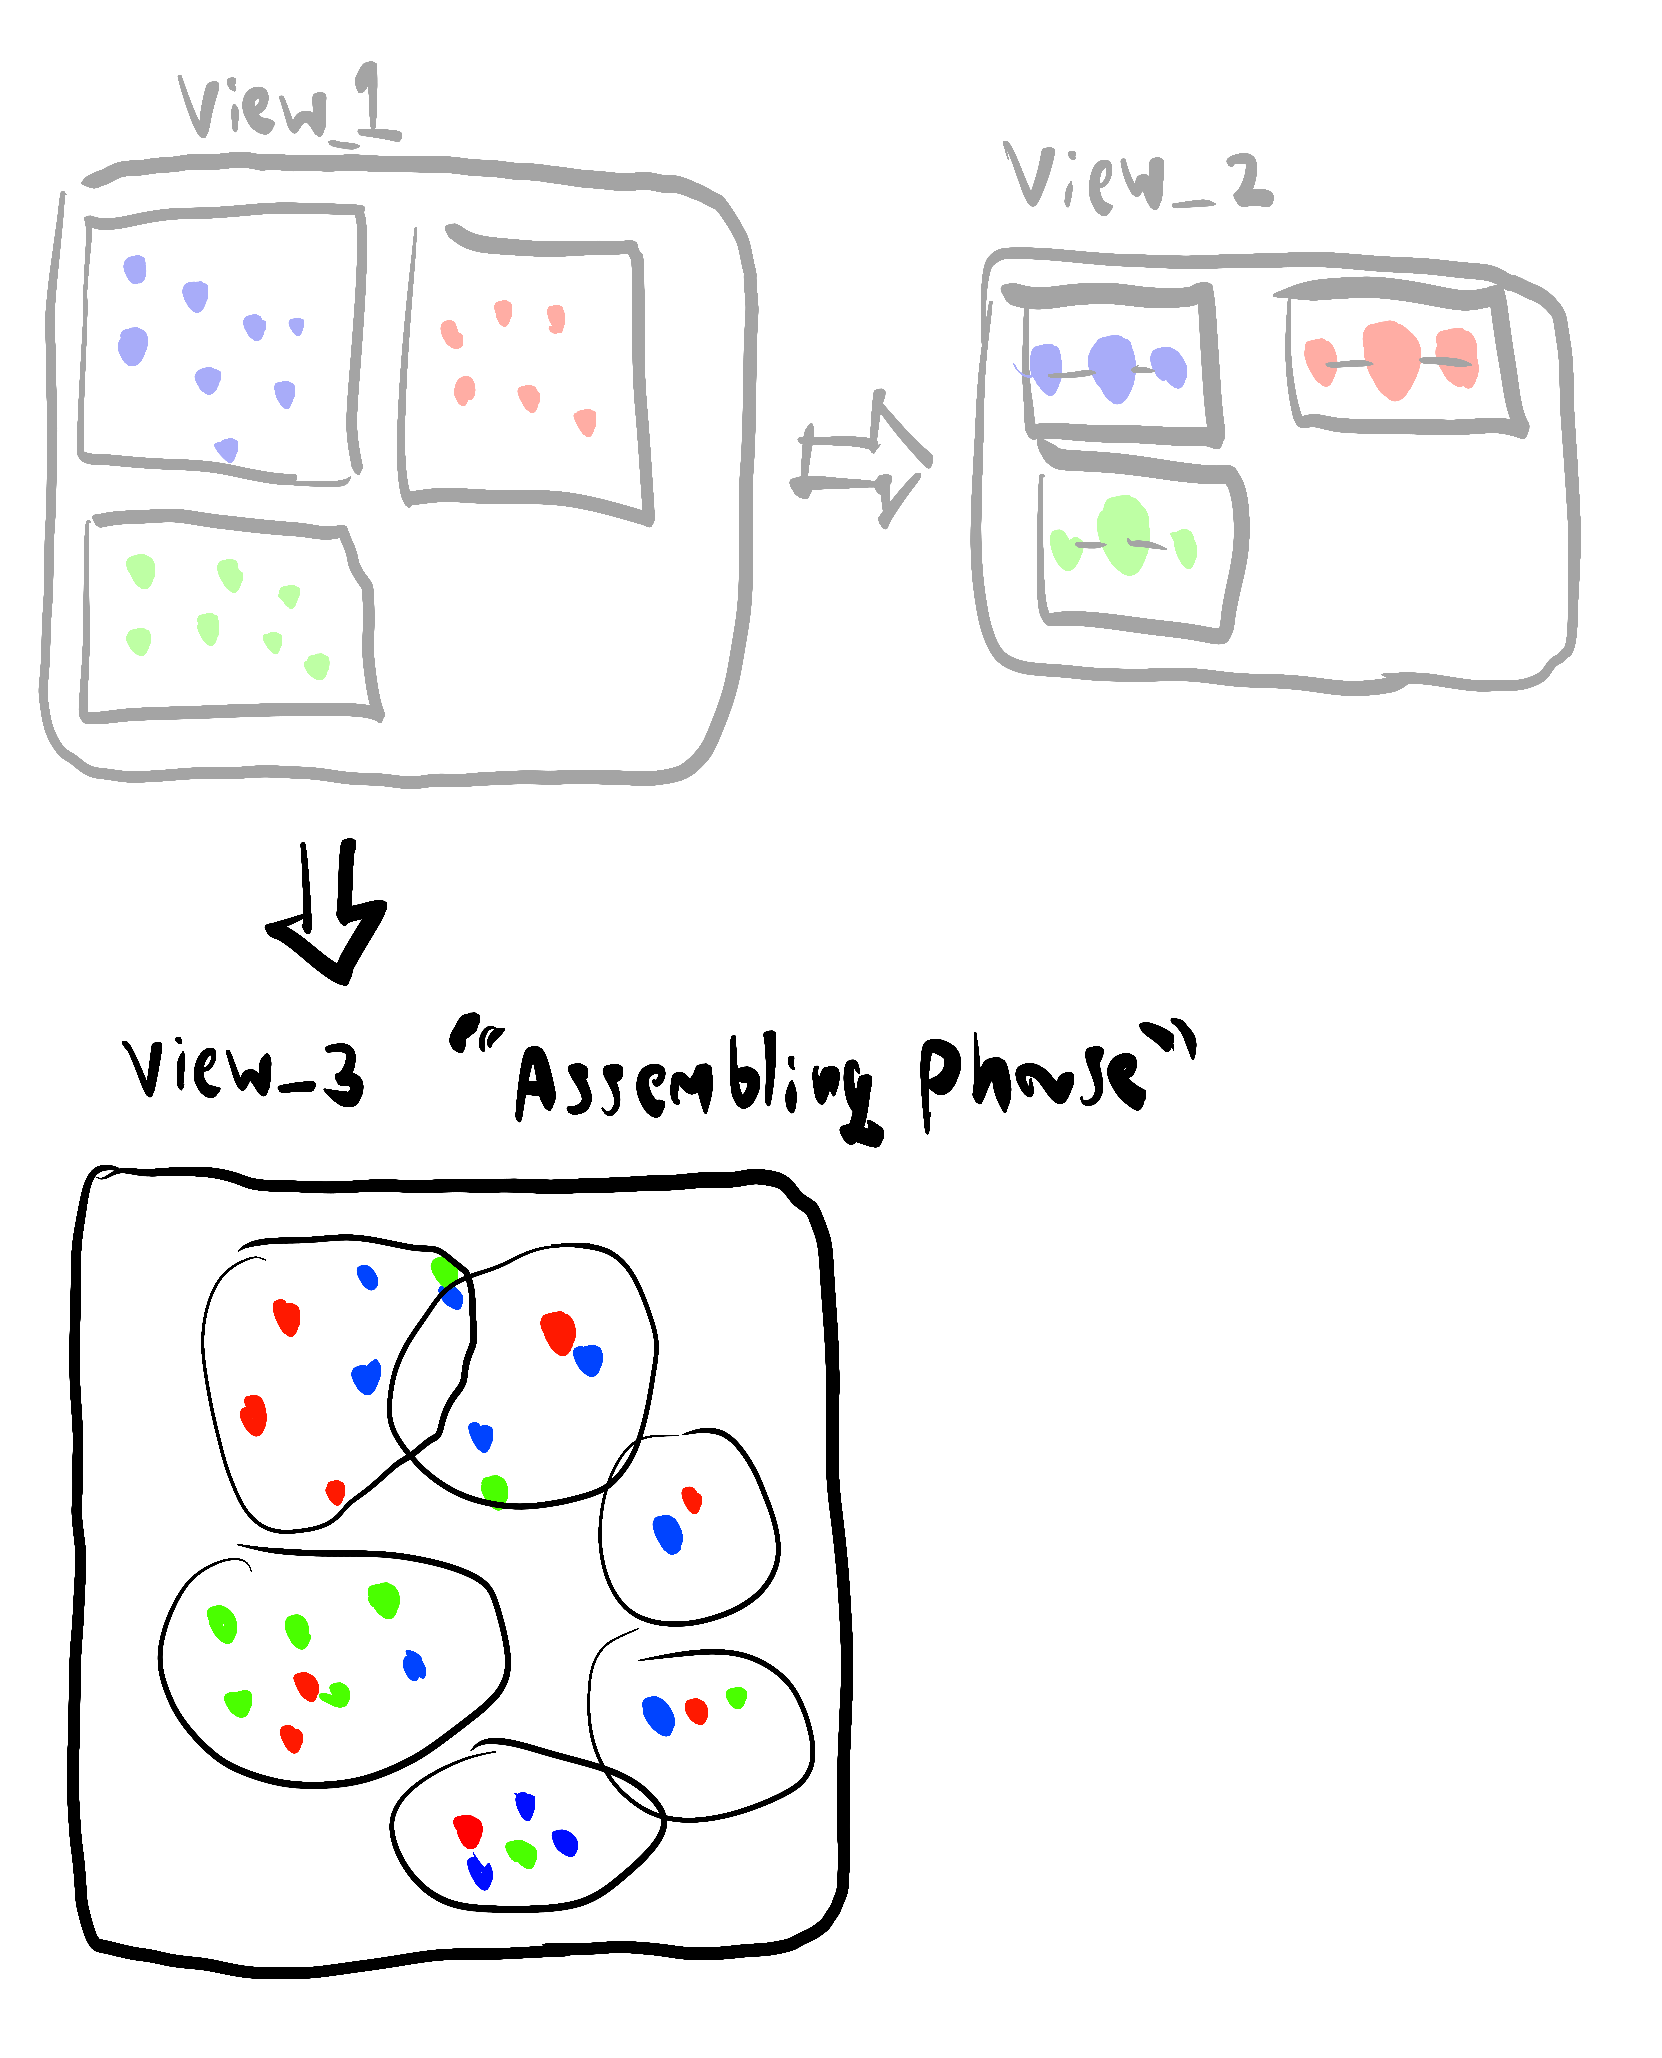 View_1
View_2
View_3 "Assembling phase"